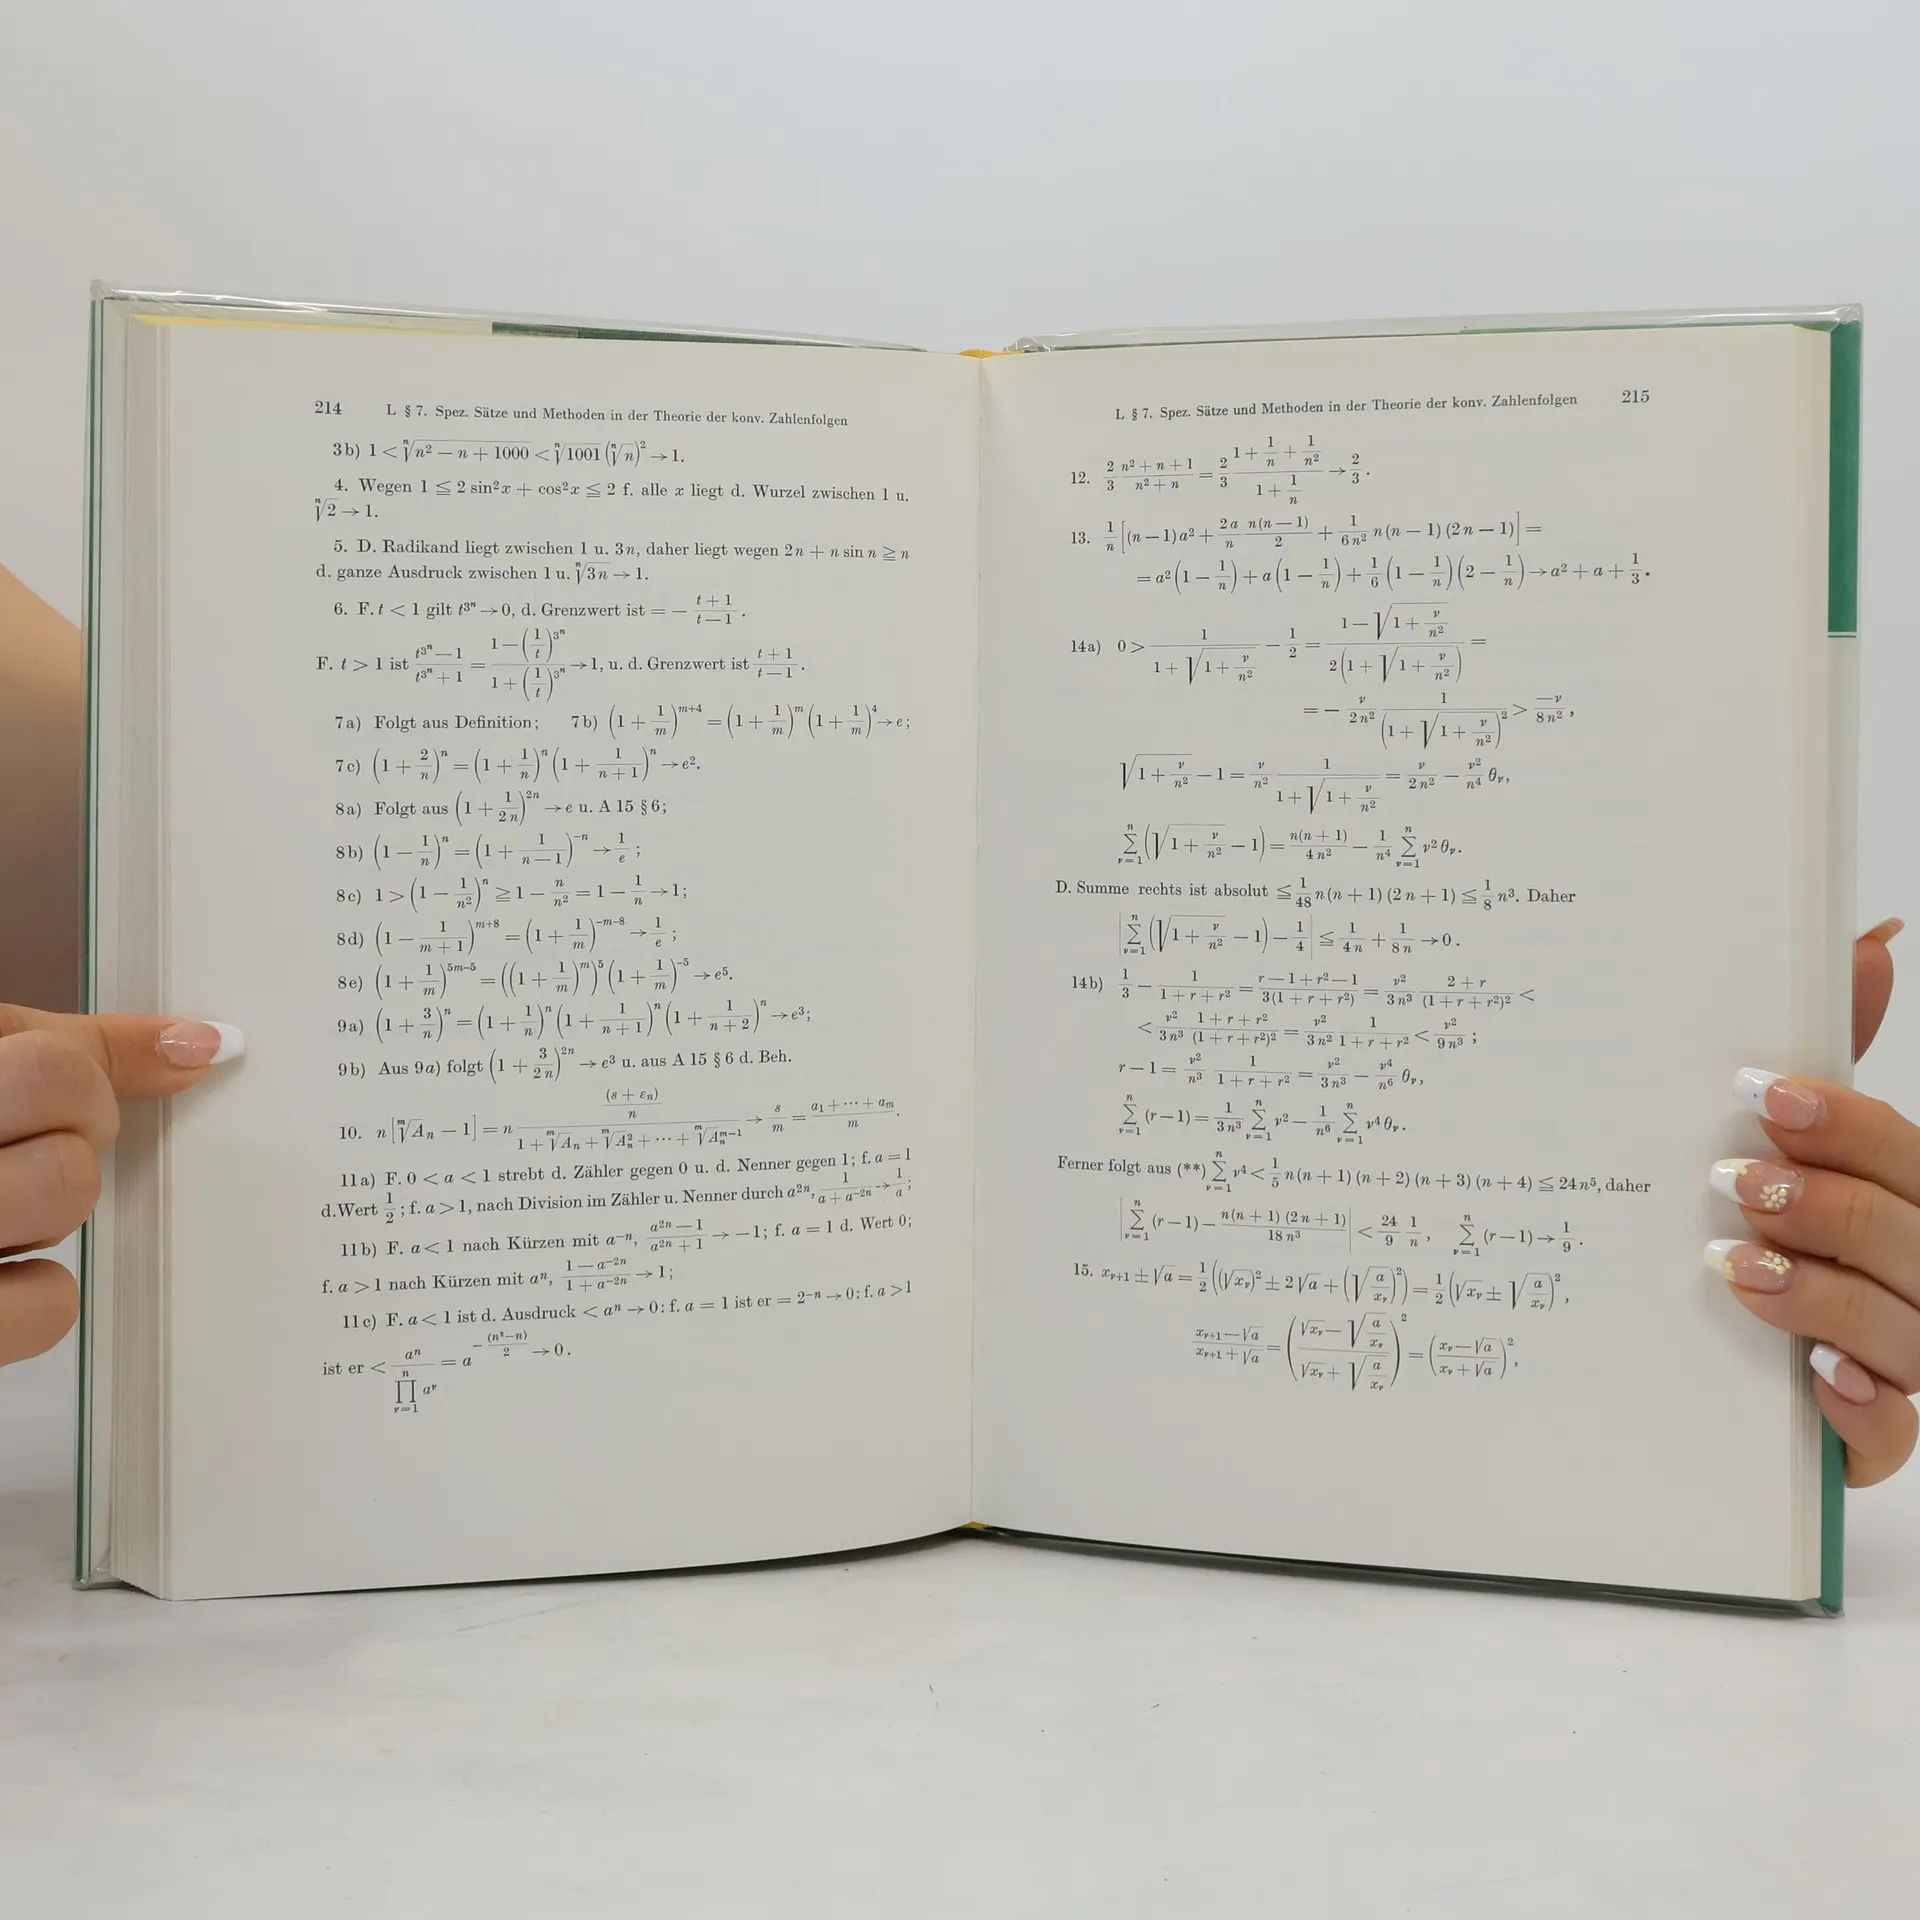 214 L § 7. Spez. Sätze und Methoden in der Theorie der konv. Zahlenfolgen
3b) 1 < \sqrt[n]{n² − n + 1000} < \sqrt[n]{1001} (\sqrt[n]{n})² → 1.
4. Wegen 1 ≦ 2 sin²x + cos²x ≦ 2 f. alle x liegt d. Wurzel zwischen 1 u.
\sqrt[n]{2} → 1.
5. D. Radikand liegt zwischen 1 u. 3n, daher liegt wegen 2n + n sin n ≧ n
d. ganze Ausdruck zwischen 1 u. \sqrt[n]{3n} → 1.
6. F. t < 1 gilt t^{3^n} → 0, d. Grenzwert ist = − \frac{t+1}{t−1}.
F. t > 1 ist \frac{t^{3^n}−1}{t^{3^n}+1} = \frac{1−(\frac{1}{t})^{3^n}}{1+(\frac{1}{t})^{3^n}} → 1, u. d. Grenzwert ist \frac{t+1}{t−1}.
7a) Folgt aus Definition; 7b) (1+\frac{1}{m})^{m+4} = (1+\frac{1}{m})^m (1+\frac{1}{m})^4 → e;
7c) (1+\frac{2}{n})^n = (1+\frac{1}{n})^n (1+\frac{1}{n+1})^n → e².
8a) Folgt aus (1+\frac{1}{2n})^{2n} → e u. A 15 § 6;
8b) (1−\frac{1}{n})^n = (1+\frac{1}{n−1})^{−n} → \frac{1}{e};
8c) 1 > (1−\frac{1}{n²})^n ≧ 1−\frac{n}{n²} = 1−\frac{1}{n} → 1;
8d) (1−\frac{1}{m+1})^{m+8} = (1+\frac{1}{m})^{−m−8} → \frac{1}{e};
8e) (1+\frac{1}{m})^{5m−5} = ((1+\frac{1}{m})^m)^5 (1+\frac{1}{m})^{−5} → e⁵.
9a) (1+\frac{3}{n})^n = (1+\frac{1}{n})^n (1+\frac{1}{n+1})^n (1+\frac{1}{n+2})^n → e³;
9b) Aus 9a) folgt (1+\frac{3}{2n})^{2n} → e³ u. aus A 15 § 6 d. Beh.
10. n[\sqrt[m]{A_n} − 1] = n \frac{\frac{(s+ε_n)}{n}}{1+\sqrt[m]{A_n}+\sqrt[m]{A_n^2}+⋯+\sqrt[m]{A_n^{m−1}}} → \frac{s}{m} = \frac{a_1+⋯+a_m}{m}.
11a) F. 0 < a < 1 strebt d. Zähler gegen 0 u. d. Nenner gegen 1; f. a = 1
d.Wert \frac{1}{2}; f. a > 1, nach Division im Zähler u. Nenner durch a^{2n}, \frac{1}{a+a^{−2n}} → \frac{1}{a};
11b) F. a < 1 nach Kürzen mit a^{−n}, \frac{a^{2n}−1}{a^{2n}+1} → −1; f. a = 1 d. Wert 0;
f. a > 1 nach Kürzen mit a^n, \frac{1−a^{−2n}}{1+a^{−2n}} → 1;
11c) F. a < 1 ist d. Ausdruck < a^n → 0: f. a = 1 ist er = 2^{−n} → 0: f. a > 1
ist er < \frac{a^n}{\prod_{ν=1}^{n} a^ν} = a^{−\frac{(n²−n)}{2}} → 0.
L § 7. Spez. Sätze und Methoden in der Theorie der konv. Zahlenfolgen 215
12. \frac{2}{3} \frac{n²+n+1}{n²+n} = \frac{2}{3} \frac{1+\frac{1}{n}+\frac{1}{n²}}{1+\frac{1}{n}} → \frac{2}{3}.
13. \frac{1}{n}[(n−1)a² + \frac{2a}{n} \frac{n(n−1)}{2} + \frac{1}{6n²} n(n−1)(2n−1)] =
= a²(1−\frac{1}{n}) + a(1−\frac{1}{n}) + \frac{1}{6}(1−\frac{1}{n})(2−\frac{1}{n}) → a²+a+\frac{1}{3}.
14a) 0 > \frac{1}{1+\sqrt{1+\frac{ν}{n²}}} − \frac{1}{2} = \frac{1−\sqrt{1+\frac{ν}{n²}}}{2(1+\sqrt{1+\frac{ν}{n²}})} =
= −\frac{ν}{2n²} \frac{1}{(1+\sqrt{1+\frac{ν}{n²}})²} > \frac{−ν}{8n²},
\sqrt{1+\frac{ν}{n²}} − 1 = \frac{ν}{n²} \frac{1}{1+\sqrt{1+\frac{ν}{n²}}} = \frac{ν}{2n²} − \frac{ν²}{n⁴} θ_ν,
\sum_{ν=1}^{n} (\sqrt{1+\frac{ν}{n²}} − 1) = \frac{n(n+1)}{4n²} − \frac{1}{n⁴} \sum_{ν=1}^{n} ν² θ_ν.
D. Summe rechts ist absolut ≦ \frac{1}{48} n(n+1)(2n+1) ≦ \frac{1}{8} n³. Daher
|\sum_{ν=1}^{n} (\sqrt{1+\frac{ν}{n²}} − 1) − \frac{1}{4}| ≦ \frac{1}{4n} + \frac{1}{8n} → 0.
14b) \frac{1}{3} − \frac{1}{1+r+r²} = \frac{r−1+r²−1}{3(1+r+r²)} = \frac{ν²}{3n³} \frac{2+r}{(1+r+r²)²} <
< \frac{ν²}{3n³} \frac{1+r+r²}{(1+r+r²)²} = \frac{ν²}{3n²} \frac{1}{1+r+r²} < \frac{ν²}{9n³};
r−1 = \frac{ν²}{n³} \frac{1}{1+r+r²} = \frac{ν²}{3n³} − \frac{ν⁴}{n⁶} θ_ν,
\sum_{ν=1}^{n} (r−1) = \frac{1}{3n³} \sum_{ν=1}^{n} ν² − \frac{1}{n⁶} \sum_{ν=1}^{n} ν⁴ θ_ν.
Ferner folgt aus (**) \sum_{ν=1}^{n} ν⁴ < \frac{1}{5} n(n+1)(n+2)(n+3)(n+4) ≦ 24n⁵, daher
|\sum_{ν=1}^{n} (r−1) − \frac{n(n+1)(2n+1)}{18n³}| < \frac{24}{9} \frac{1}{n}, \sum_{ν=1}^{n} (r−1) → \frac{1}{9}.
15. x_{ν+1} ± \sqrt{a} = \frac{1}{2}((\sqrt{x_ν})² ± 2\sqrt{a} + (\sqrt{\frac{a}{x_ν}})²) = \frac{1}{2}(\sqrt{x_ν} ± \sqrt{\frac{a}{x_ν}})²,
\frac{x_{ν+1}−\sqrt{a}}{x_{ν+1}+\sqrt{a}} = (\frac{\sqrt{x_ν}−\sqrt{\frac{a}{x_ν}}}{\sqrt{x_ν}+\sqrt{\frac{a}{x_ν}}})² = (\frac{x_ν−\sqrt{a}}{x_ν+\sqrt{a}})²,